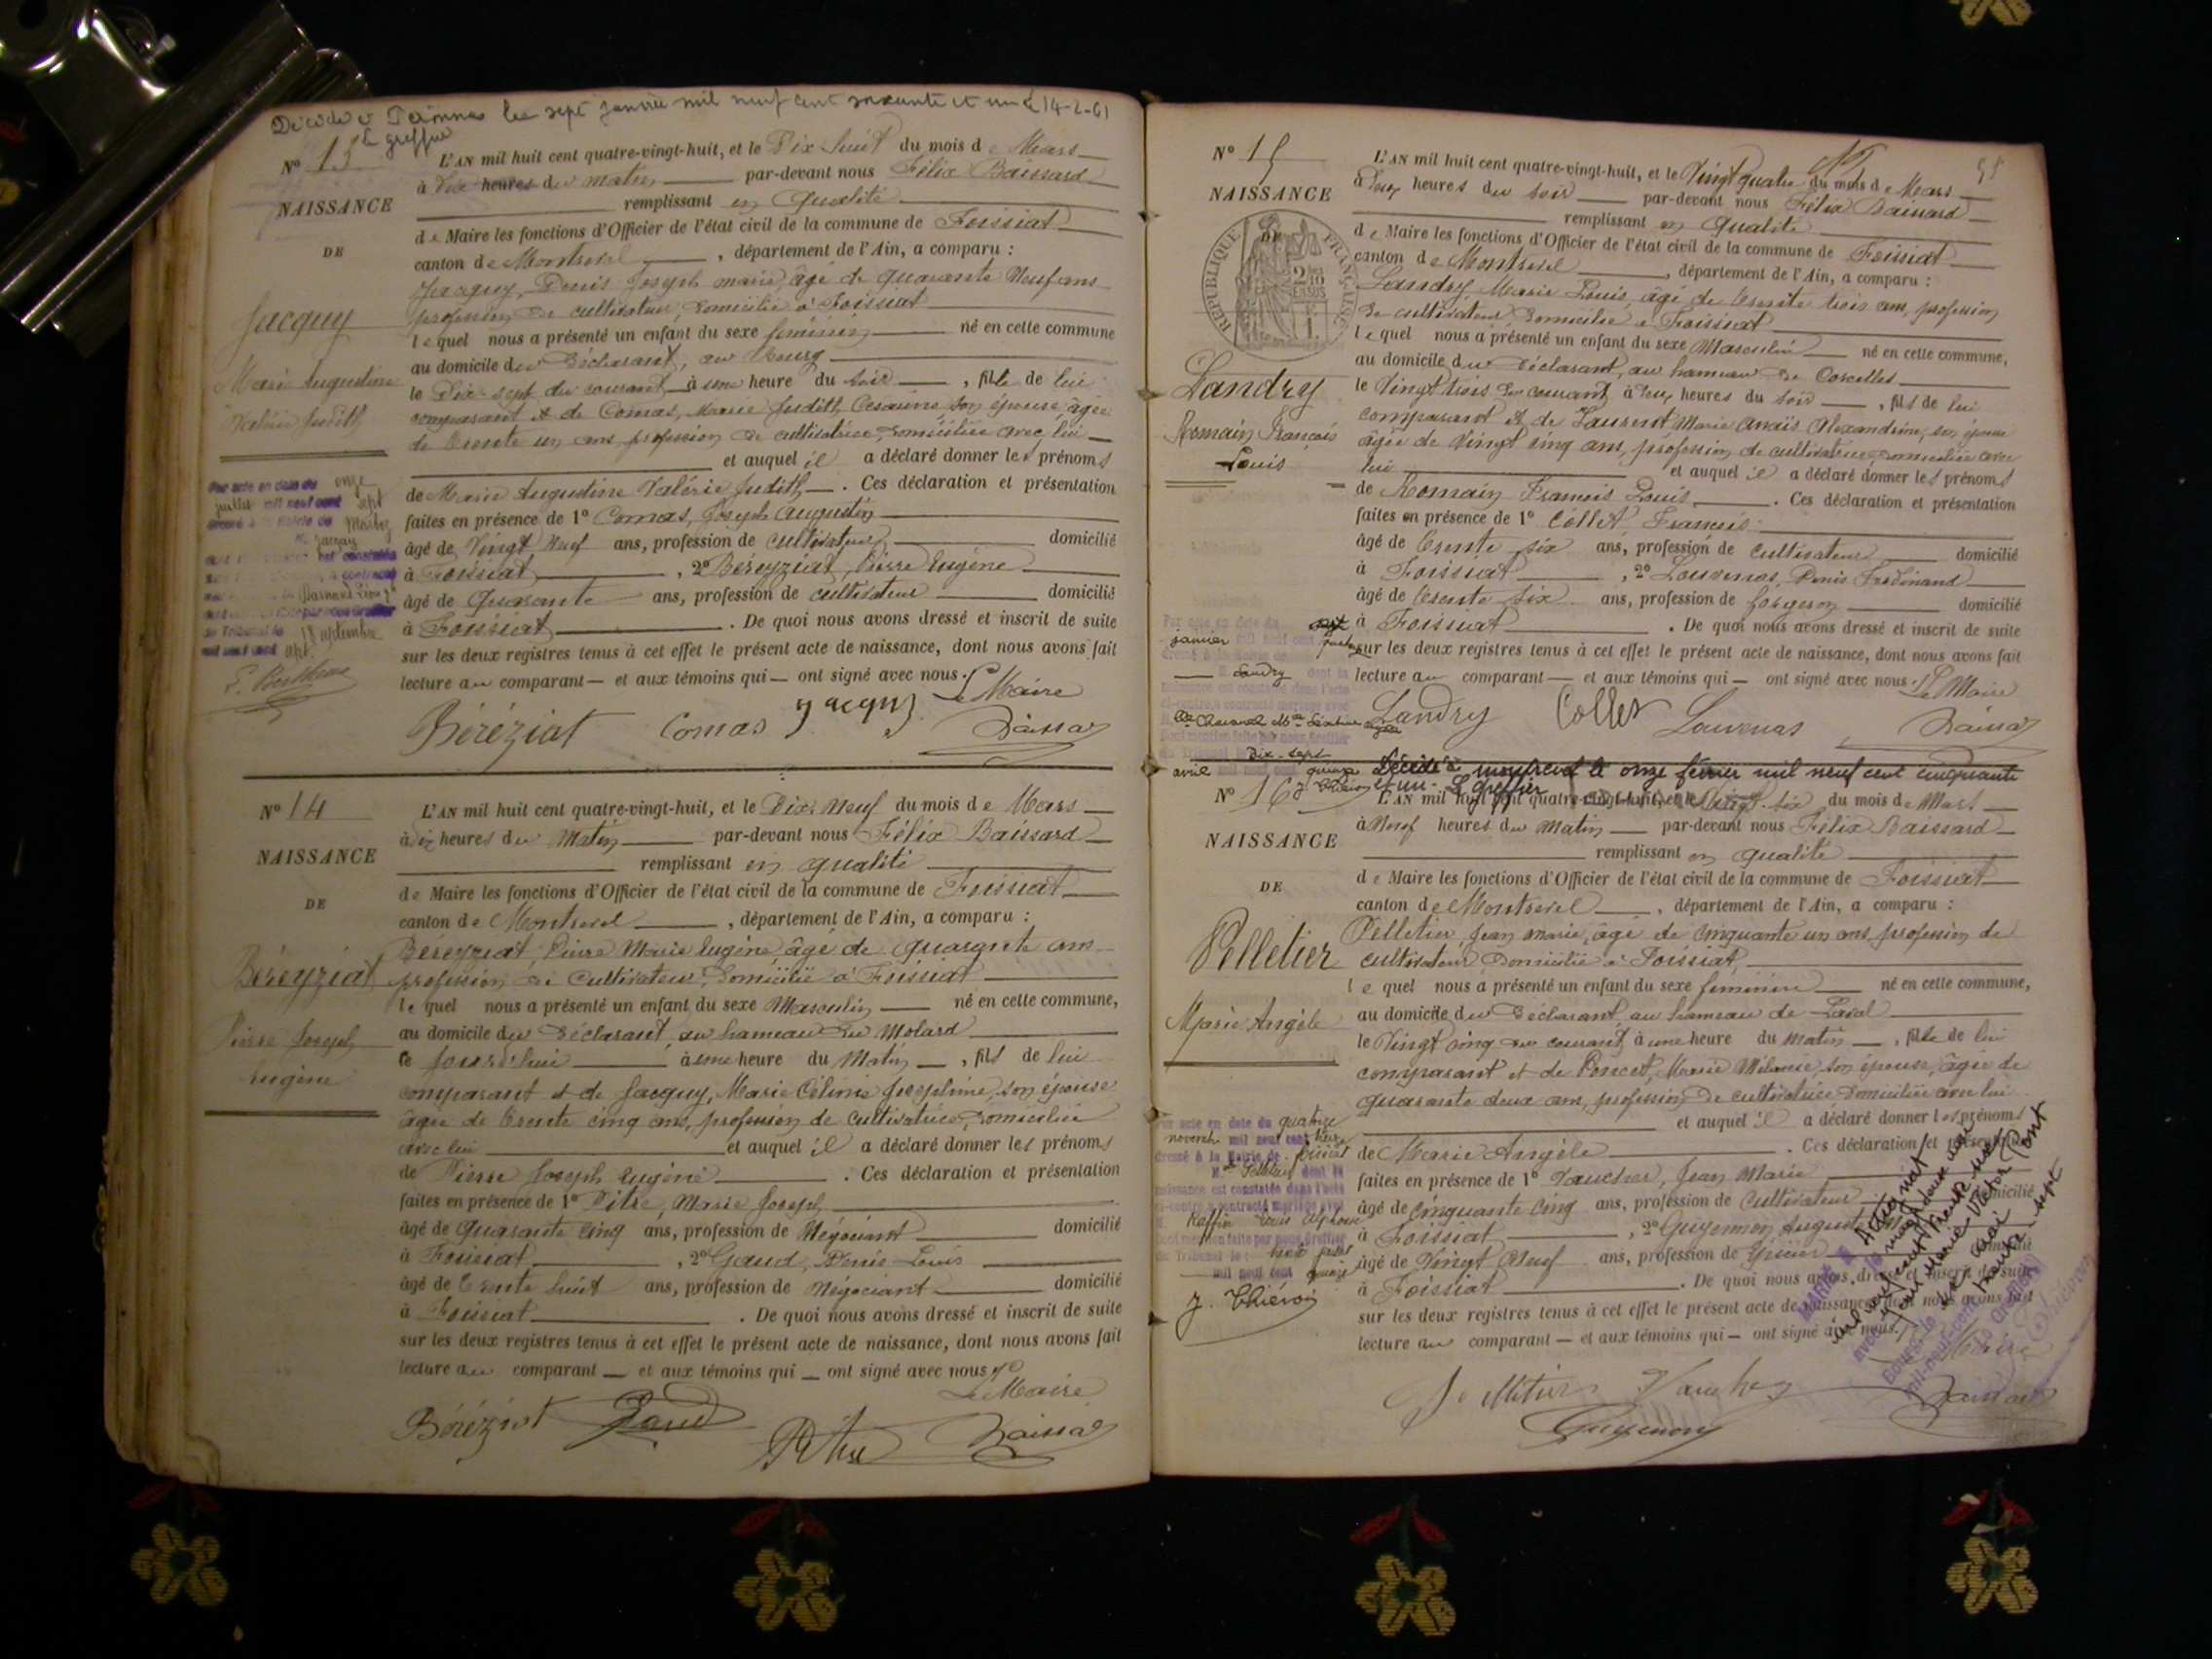 Décédée à Péronnas le sept janvier mil neuf cent soixante et un 14-2-61
Le greffier
N° 13
NAISSANCE
DE
Jacquy
Marie Augustine
Valérie Judith
L'AN mil huit cent quatre-vingt-huit, et le Dix huit du mois de Mars
à Dix heures du matin par-devant nous Félix Baissard
remplissant en qualité
de Maire les fonctions d'Officier de l'état civil de la commune de Foissiat
canton de Montrevel, département de l'Ain, a comparu :
Jacquy, Denis Joseph marie, âgé de quarante Neuf ans
profession de cultivateur, domicilié à Foissiat
lequel nous a présenté un enfant du sexe féminin né en cette commune
au domicile du déclarant, au Bourg
le Dix-sept du courant à une heure du soir, fille de lui
comparant et de Comas, Marie Judith Césarine son épouse âgée
de trente un ans profession de cultivatrice, domiciliée avec lui
et auquel il a déclaré donner les prénoms
de Marie Augustine Valérie Judith. Ces déclaration et présentation
faites en présence de 1° Comas, Joseph Augustin
âgé de Vingt Neuf ans, profession de cultivateur domicilié
à Foissiat, 2° Béreyziat, Pierre Eugène
âgé de Quarante ans, profession de cultivateur domicilié
à Foissiat. De quoi nous avons dressé et inscrit de suite
sur les deux registres tenus à cet effet le présent acte de naissance, dont nous avons fait
lecture au comparant et aux témoins qui ont signé avec nous.
Le Maire
Béréziat Comas Jacquy Baissard
Par acte en date du onze
juillet mil neuf cent sept
dressé à la Mairie de
Jacquy
du Tribunal le 18 septembre
mil neuf cent sept
N° 14
NAISSANCE
DE
Béreyziat
Pierre Joseph
Eugène
L'AN mil huit cent quatre-vingt-huit, et le Dix Neuf du mois de Mars
à dix heures du Matin par-devant nous Félix Baissard
remplissant en qualité
de Maire les fonctions d'Officier de l'état civil de la commune de Foissiat
canton de Montrevel, département de l'Ain, a comparu :
Béreyziat, Pierre Marie Eugène, âgé de quarante ans
profession de Cultivateur, domicilié à Foissiat
lequel nous a présenté un enfant du sexe Masculin né en cette commune,
au domicile du Déclarant, au hameau du Molard
le jourd'hui à une heure du Matin, fils de lui
comparant et de Jacquy, Marie Célinie Joséphine, son épouse
âgée de trente cinq ans, profession de cultivatrice, domiciliée
avec lui et auquel il a déclaré donner les prénoms
de Pierre Joseph Eugène. Ces déclaration et présentation
faites en présence de 1° Pitre, Marie Joseph
âgé de quarante cinq ans, profession de Négociant domicilié
à Foissiat, 2° Gaud, Denis Louis
âgé de trente huit ans, profession de Négociant domicilié
à Foissiat. De quoi nous avons dressé et inscrit de suite
sur les deux registres tenus à cet effet le présent acte de naissance, dont nous avons fait
lecture au comparant et aux témoins qui ont signé avec nous
Le Maire
Béréziat Gaud Pitre Baissard
N° 15
NAISSANCE
DE
RÉPUBLIQUE FRANÇAISE
Landry
Romain François
Louis
L'AN mil huit cent quatre-vingt-huit, et le Vingt quatre du mois de Mars
à heures du soir par-devant nous Félix Baissard
remplissant en qualité
de Maire les fonctions d'Officier de l'état civil de la commune de Foissiat
canton de Montrevel, département de l'Ain, a comparu :
Landry Marie Louis, âgé de trente trois ans, profession
de cultivateur domicilié à Foissiat
lequel nous a présenté un enfant du sexe Masculin né en cette commune,
au domicile du Déclarant, au hameau de Corcelles
le Vingt trois du courant, à heures du soir, fils de lui
comparant et de Laurent Marie Anaïs Alexandrine, son épouse
âgée de Vingt cinq ans, profession de cultivatrice domiciliée avec
lui et auquel il a déclaré donner les prénoms
de Romain François Louis. Ces déclaration et présentation
faites en présence de 1° Collet François
âgé de trente six ans, profession de cultivateur domicilié
à Foissiat, 2° Louvenas, Denis Ferdinand
âgé de trente six ans, profession de forgeron domicilié
à Foissiat. De quoi nous avons dressé et inscrit de suite
sur les deux registres tenus à cet effet le présent acte de naissance, dont nous avons fait
lecture au comparant et aux témoins qui ont signé avec nous.
Le Maire
Landry Collet Louvenas Baissard
Par acte en date du
janvier mil neuf cent
Landry dont la
naissance est constatée dans l'acte
ci-contre, a contracté mariage avec
Dont mention faite par nous Greffier
Dix-sept
avril mil neuf cent quinze
Décédé à Montrevel le onze février mil neuf cent cinquante
et un. Le greffier
N° 16
NAISSANCE
DE
Pelletier
Marie Angèle
L'AN mil huit cent quatre-vingt-huit, et le Vingt six du mois de Mars
à Neuf heures du Matin par-devant nous Félix Baissard
remplissant en qualité
de Maire les fonctions d'Officier de l'état civil de la commune de Foissiat
canton de Montrevel, département de l'Ain, a comparu :
Pelletier Jean Marie, âgé de cinquante un ans, profession de
cultivateur domicilié à Foissiat,
lequel nous a présenté un enfant du sexe féminin né en cette commune,
au domicile du Déclarant, au hameau de Laval
le Vingt cinq du courant, à une heure du matin, fille de lui
comparant et de Poncet, Marie Mélanie, son épouse, âgée de
quarante deux ans, profession de cultivatrice domiciliée avec lui
et auquel il a déclaré donner les prénoms
de Marie Angèle. Ces déclaration et présentation
faites en présence de 1° Vaucher, Jean Marie
âgé de cinquante cinq ans, profession de Cultivateur domicilié
à Foissiat, 2° Guyennon, Auguste
âgé de Vingt Neuf ans, profession de Épicier domicilié
à Foissiat. De quoi nous avons dressé et inscrit de suite
sur les deux registres tenus à cet effet le présent acte de naissance, dont nous avons fait
lecture au comparant et aux témoins qui ont signé avec nous.
Le Maire
Pelletier Vaucher Baissard
Guyennon
Par acte en date du quatorze
novembre mil neuf cent treize
dressé à la Mairie de Foissiat
Pelletier dont la
naissance est constatée dans l'acte
ci-contre, a contracté mariage avec
Louis Alphonse
Dont mention faite par nous Greffier
du Tribunal le
mil neuf cent quinze
Marié à Attignat
mil neuf cent trente sept
avec Marie Victor Pont
Bourg, le mai
mil-neuf-cent trente sept
Le Greffier